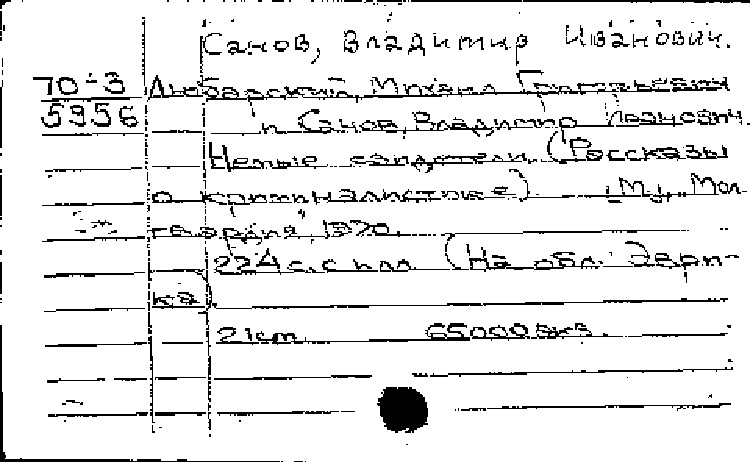 Санов, Владимир Иванович.
70-3 Любарский, Михаил Григорьевич
5956 и Санов, Владимир Иванович.
Немые свидетели. (Рассказы
о криминалистике). [М.], "Мол.
гвардия", 1970.
224 с. с илл. (На обл.: Эври-
ка).
21cm 65000 экз.